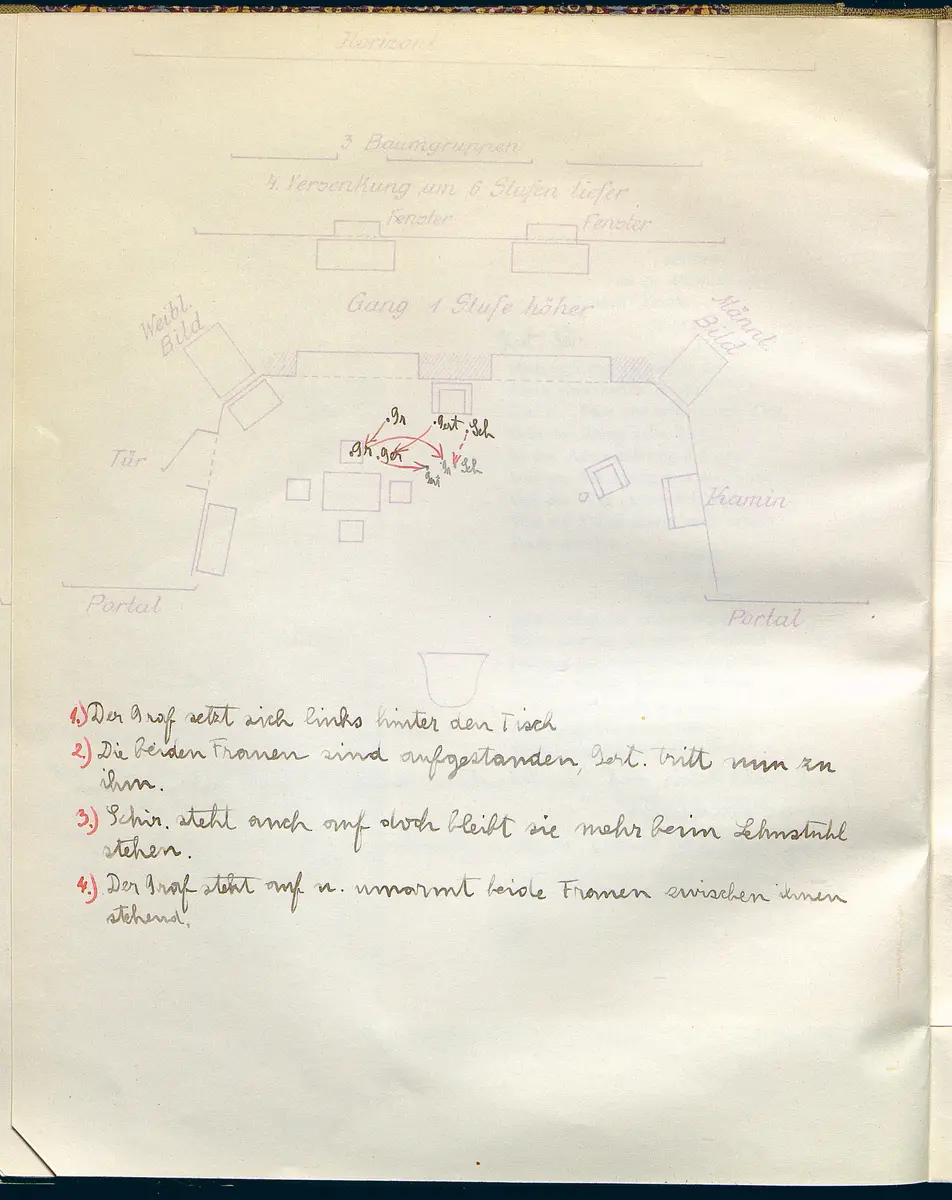 Horizont
3 Baumgruppen
4. Versenkung um 6 Stufen tiefer
Fenster
Fenster
Gang 1 Stufe höher
Weibl.
Bild
Männl.
Bild
.Gr
.Gert
.Sch
.Gr .Ger
Gert
Gr
Sch
Tür
Kamin
Portal
Portal
1.) Der Graf setzt sich links hinter den Tisch
2.) Die beiden Frauen sind aufgestanden, Gert. tritt nun zu
ihm.
3.) Schir. steht auch auf doch bleibt sie mehr beim Lehnstuhl
stehen.
4.) Der Graf steht auf u. umarmt beide Frauen zwischen ihnen
stehend.